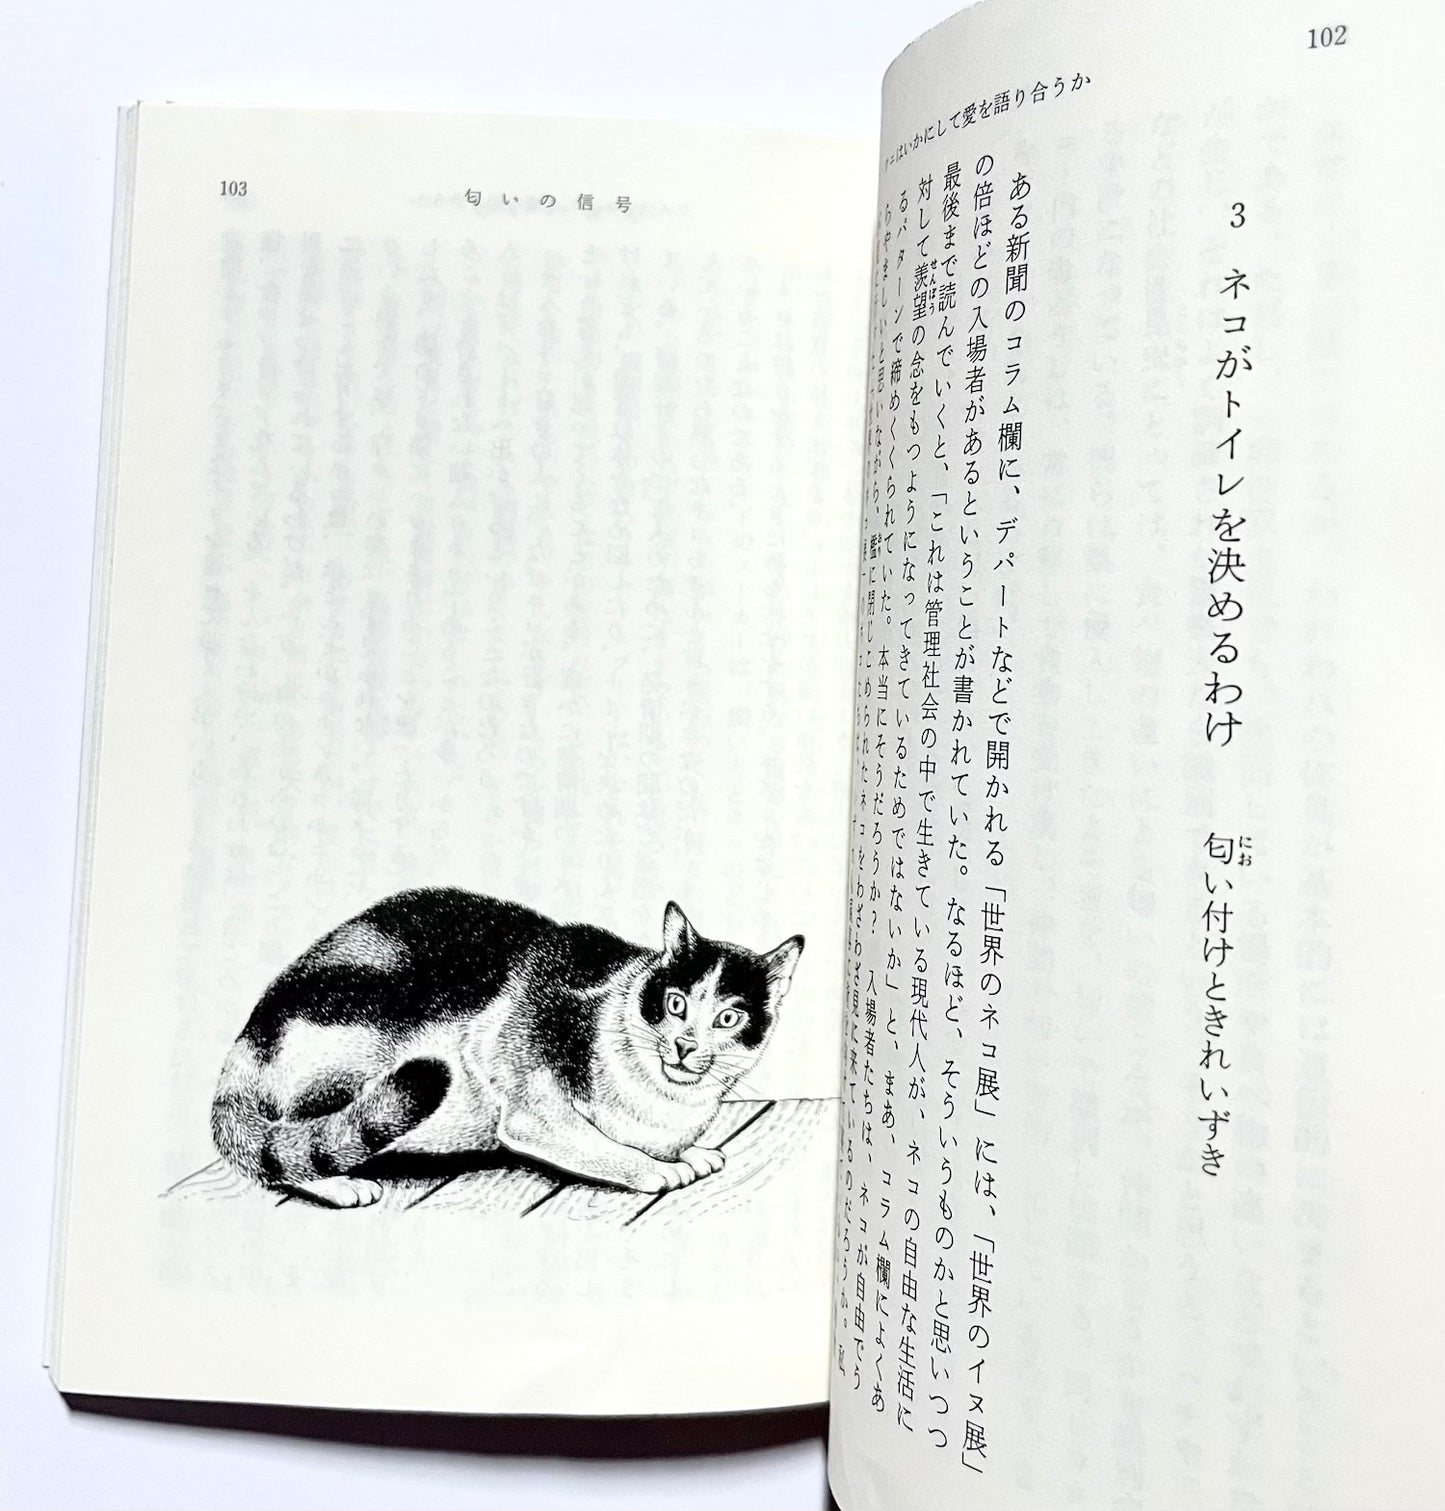 102
ワニはいかにして愛を語り合うか
3 ネコがトイレを決めるわけ 匂い付けときれいずき
にお
ある新聞のコラム欄に、デパートなどで開かれる「世界のネコ展」には、「世界のイヌ展」
の倍ほどの入場者があるということが書かれていた。なるほど、そういうものかと思いつつ
最後まで読んでいくと、「これは管理社会の中で生きている現代人が、ネコの自由な生活に
対して羨望の念をもつようになってきているためではないか」と、まあ、コラム欄によくあ
せんぼう
るパターンで締めくくられていた。本当にそうだろうか？ 入場者たちは、ネコが自由でう
らやましいと思いながら、檻に閉じこめられたネコをわざわざ見に来ているのだろうか。
103
匂いの信号